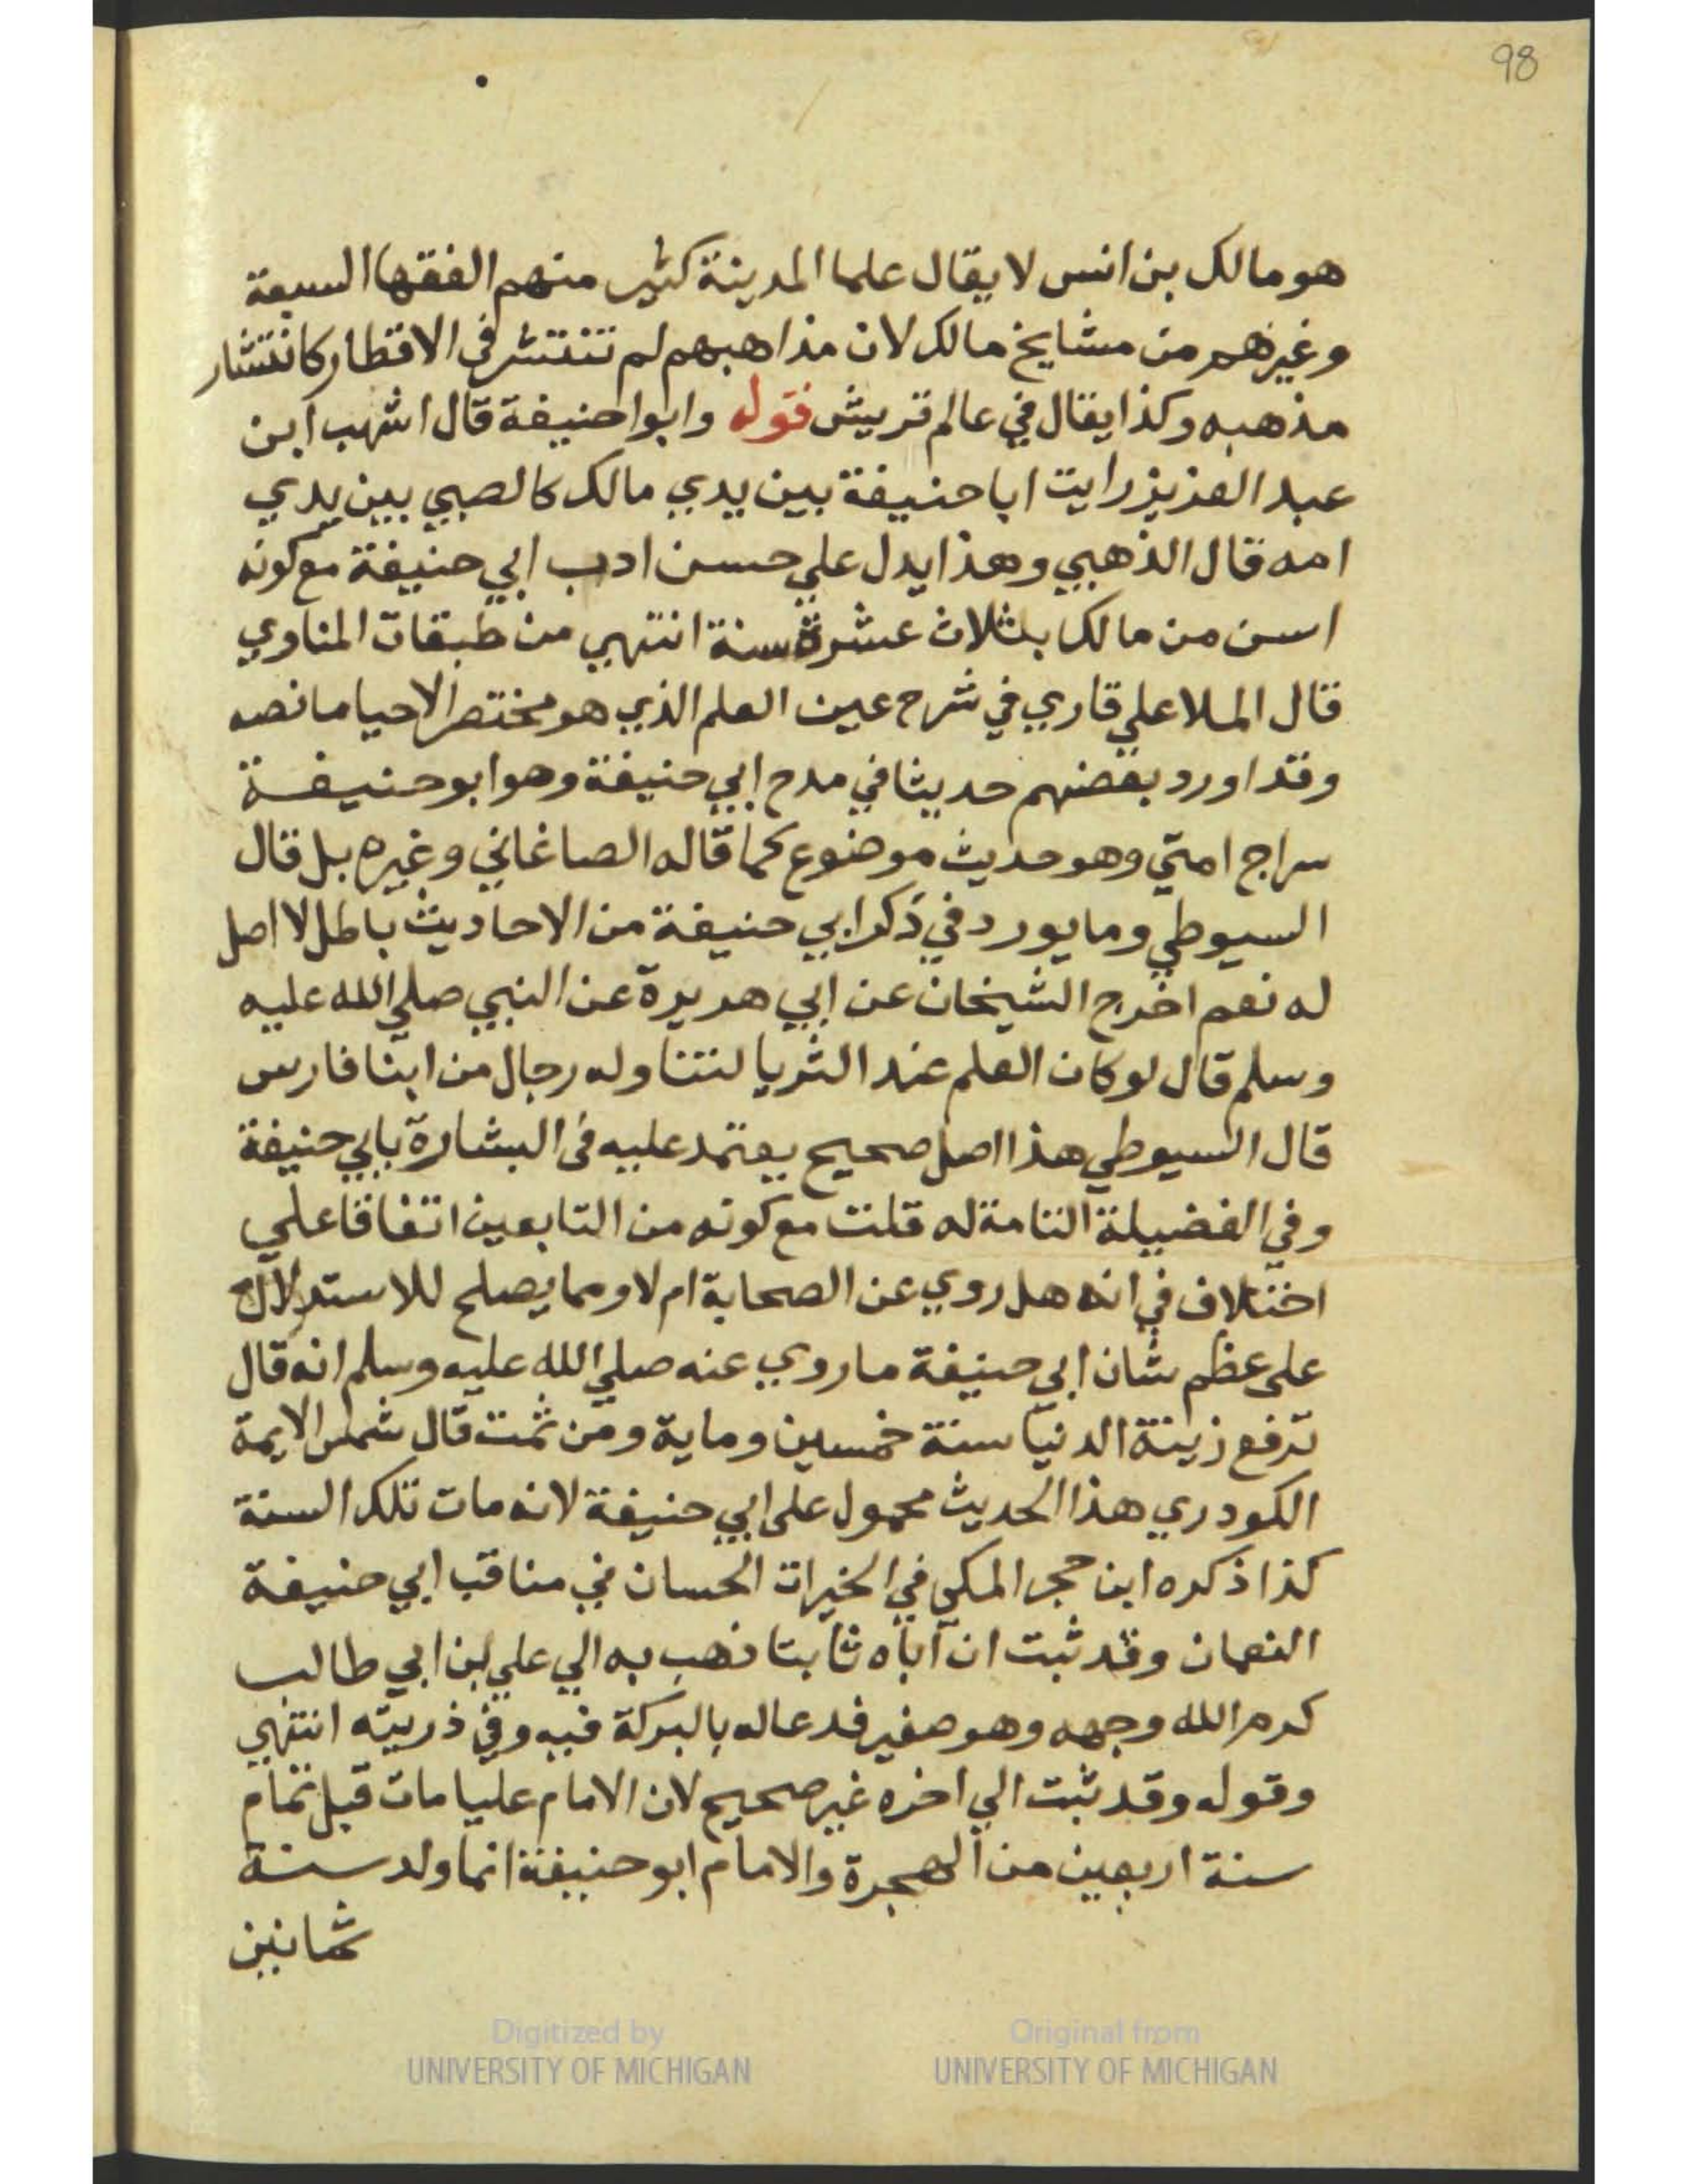 98
هو مالك بن انس لا يقال علما المدينة كثير منهم الفقها السبعة
وغيرهم من مشايخ مالك لان مذاهبهم لم تنتشر في الاقطار كانتشار
مذهبه وكذا يقال في عالم قريش قوله وابوا حنيفة قال اشهب ابن
عبد العزيز رايت ابا حنيفة بين يدي مالك كالصبي بين يدي
امه قال الذهبي وهذا يدل علي حسن ادب ابي حنيفة مع كونه
اسن من مالك بثلاث عشرة سنة انتهي من طبقات المناوي
قال الملا علي قاري في شرح عين العلم الذي هو مختصر الاحيا ما نصه
وقد اورد بعضهم حديثا في مدح ابي حنيفة وهو ابو حنيفة
سراج امتي وهو حديث موضوع كما قاله الصاغاني وغيره بل قال
السيوطي وما يورد في ذكر ابي حنيفة من الاحاديث باطل لا اصل
له نعم اخرج الشيخان عن ابي هريرة عن النبي صلي الله عليه
وسلم قال لو كان العلم عند الثريا لتناوله رجال من ابنا فارس
قال السيوطي هذا اصل صحيح يعتمد عليه في البشارة بابي حنيفة
وفي الفضيلة التامة له قلت مع كونه من التابعين اتفاقا علي
اختلاف في انه هل روي عن الصحابة ام لا ومما يصلح للاستدلال
على عظم شان ابي حنيفة ما روي عنه صلي الله عليه وسلم انه قال
ترفع زينة الدنيا سنة خمسين وماية ومن ثمت قال شمس الايمة
الكودري هذا الحديث محمول على ابي حنيفة لانه مات تلك السنة
كذا ذكره ابن حجر المكي في الخيرات الحسان في مناقب ابي حنيفة
النعمان وقد ثبت ان آباه ثابتا ذهب به الي علي بن ابي طالب
كرم الله وجهه وهو صغير فدعا له بالبركة فيه وفي ذريته انتهي
وقوله وقد ثبت الي اخره غير صحيح لان الامام عليا مات قبل تمام
سنة اربعين من الهجرة والامام ابو حنيفة انما ولد سنة
ثمانين
Digitized by
UNIVERSITY OF MICHIGAN
Original from
UNIVERSITY OF MICHIGAN